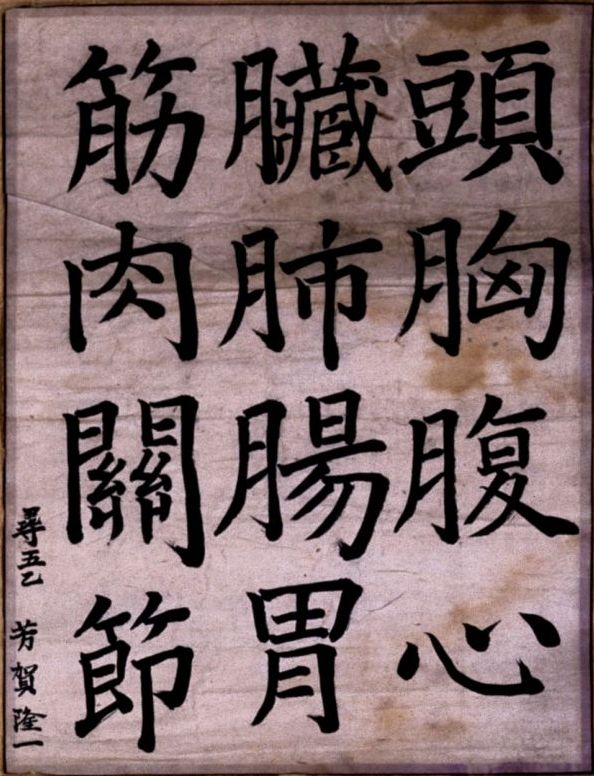 頭胸腹心
臓肺腸胃
筋肉關節
尋五乙 芳賀隆一